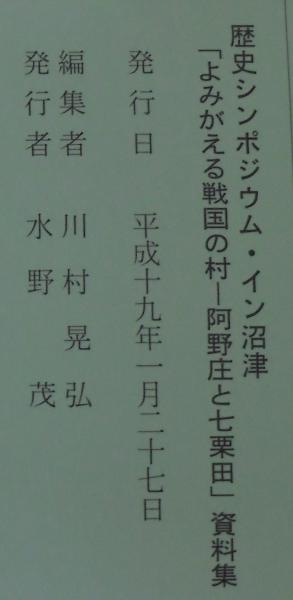 歴史シンポジウム・イン沼津
「よみがえる戦国の村ー阿野庄と七栗田」資料集
発行日　平成十九年一月二十七日
編集者　川村晃弘
発行者　水野　茂